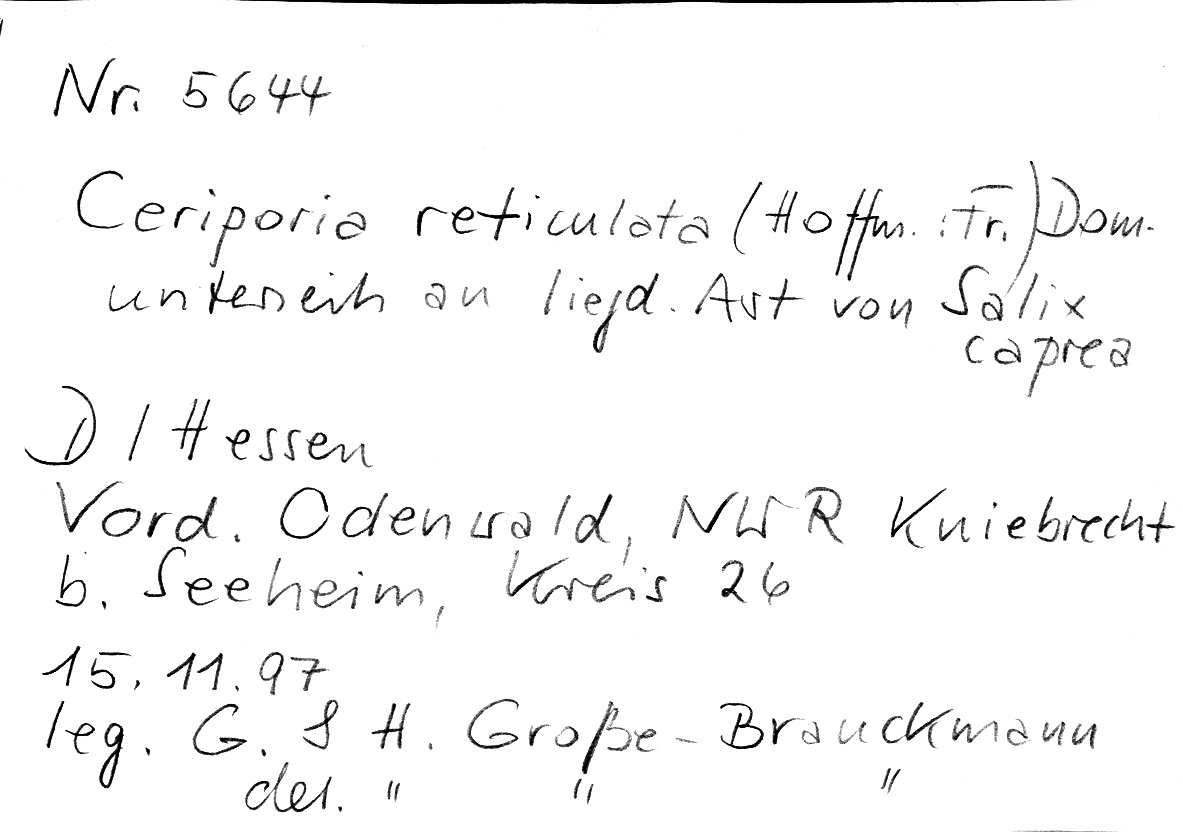 Nr. 5644
Ceriporia reticulata (Hoffm.:Fr.) Dom.
unterseits an liegd. Ast von Salix
caprea
D / Hessen
Vord. Odenwald, NWR Kniebrecht
b. Seeheim, Kreis 26
15.11.97
leg. G. & H. Große-Brauckmann
det. " " "